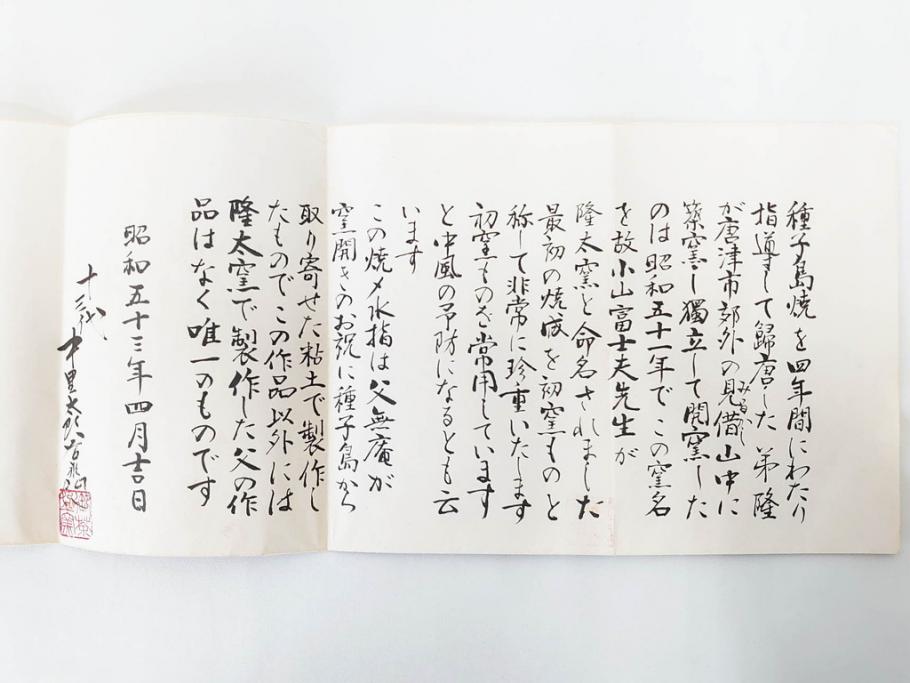 種子島焼を四年間にわたり
指導して歸唐した 弟隆
が唐津市郊外の見借山中に
みるかし
築窯し獨立して開窯した
のは昭和五十一年で この窯名
を故小山富士夫先生が
隆太窯と命名されました
最初の焼成を初窯ものと
称して非常に珍重いたします
初窯ものを常用しています
と中風の予防になるとも云
います
この焼〆水指は父無庵が
窯開きのお祝に種子島から
取り寄せた粘土で製作し
たものでこの作品以外には
隆太窯で製作した父の作
品はなく唯一のものです
昭和五十三年四月吉日
十三代 中里太郎右衛門